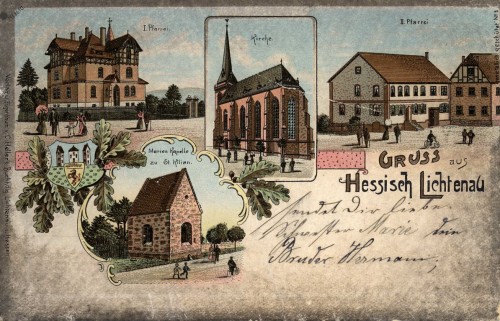 I. Pfarrei.
Kirche
II. Pfarrei
Marien Kapelle
zu St. Kilian.
GRUSS aus
Hessisch Lichtenau
sendet Dir liebe
Schwester Marie dein
Bruder Hermann.